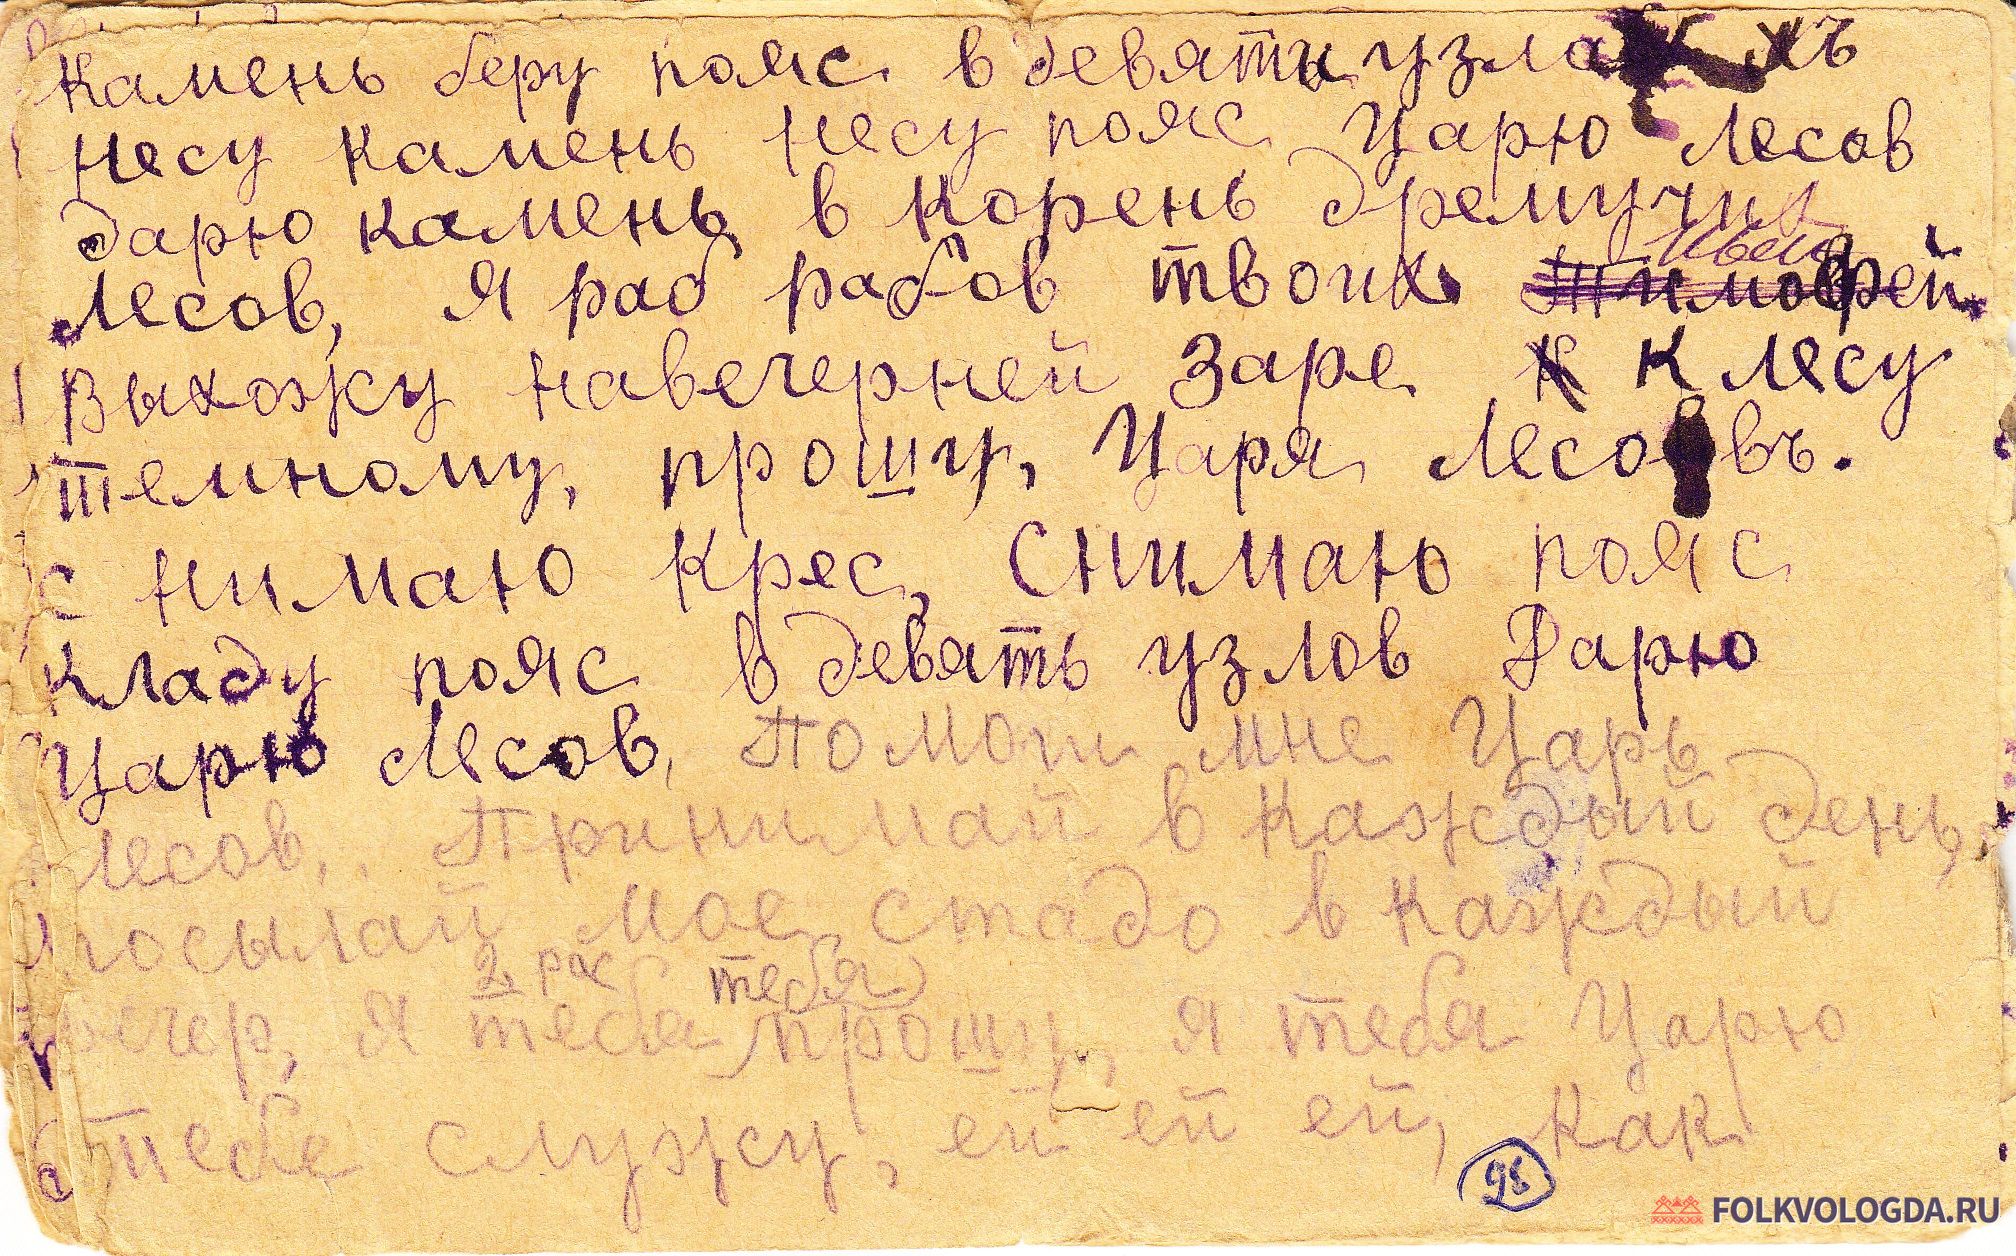 камень беру пояс в девяти узлахъ
несу камень несу пояс Царю лесов
дарю камень в корень дремучих
лесов, я раб рабов твоих Тимофей
выхожу навечерней Заре к лесу
темному, прошу, Царя Лесовъ.
снимаю крес, Снимаю пояс
кладу пояс в девять узлов Дарю
Царю Лесов, Помоги мне Царь
лесов,. Принимай в каждый день,
посылай мое стадо в каждый
2 рас тебя
вечер, я тебя прошу, я тебя Царю
тебе служу, ей ей ей, как
98
FOLKVOLOGDA.RU